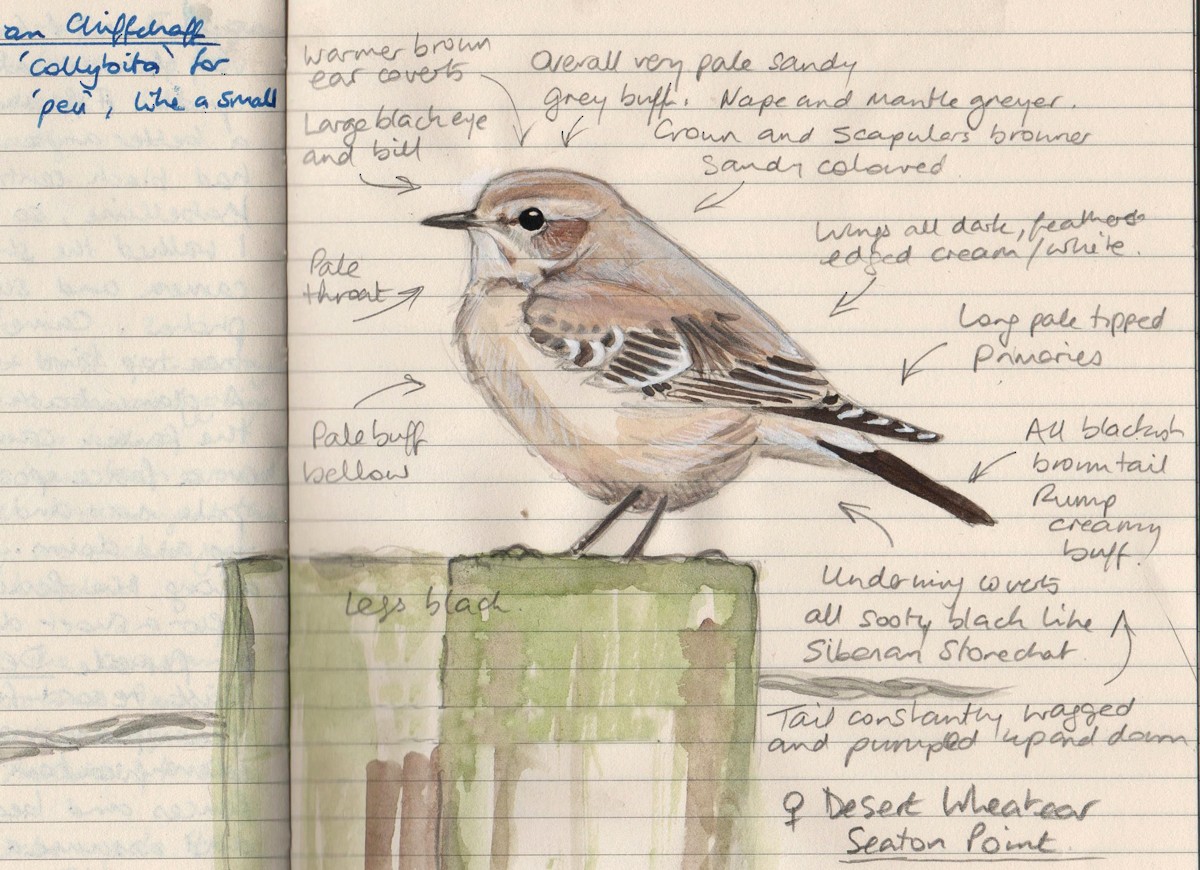 an Chiffchaff
'collybita' for
'peu', like a small
Warmer brown
ear coverts
Overall very pale sandy
grey buff. Nape and mantle greyer.
Crown and Scapulars browner
Sandy coloured
Large black eye
and bill
Wings all dark, feathers
edged cream/white.
Pale
throat
Long pale tipped
primaries
Pale buff
bellow
All blackish
brown tail
Rump
creamy
buff.
Underwing coverts
all sooty black like
Siberian Stonechat
Legs black
Tail constantly wagged
and pumped up and down
♀ Desert Wheatear
Seaton Point